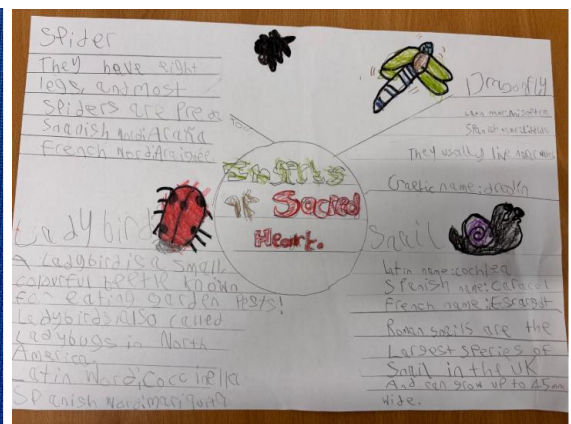 Spider
They have eight
legs, and most
spiders are Preda
tors
Spanish word: Araña
French word: Araignée
Dragonfly
Spanish word:
They usally live near
Gaelic name:
Insects
of Sacred
Heart.
Ladybird
A Ladybird is a small,
colourful beetle known
for eating garden
Ladybirds also called
Ladybugs in North
America.
Latin Word: Coccinella
Spanish Word: mariquita
Snail
Latin name: cochlea
Spanish name: Caracol
French name: Escargot
Roman snails are the
Largest species of
Snail in the UK
And can grow up to 45mm
wide.